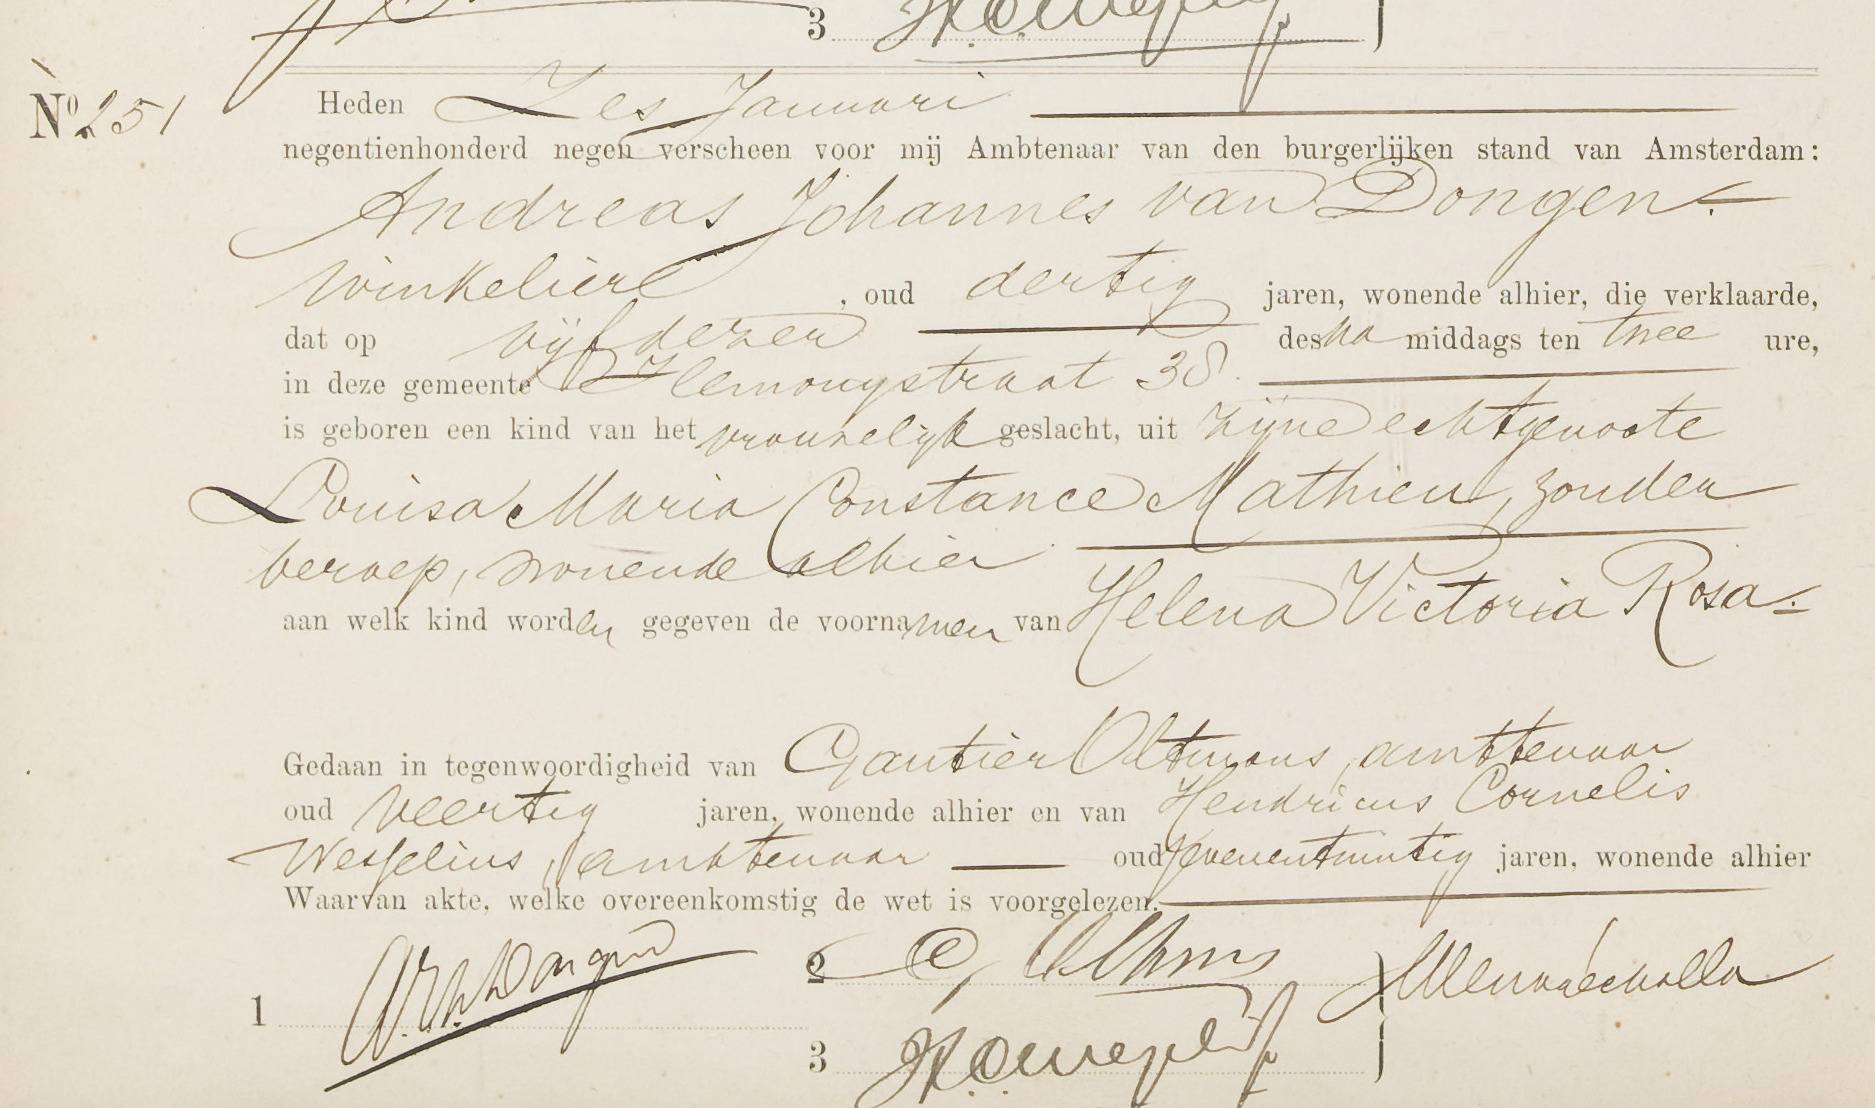 3
No 251 Heden Zes Januari
negentienhonderd negen verscheen voor mij Ambtenaar van den burgerlijken stand van Amsterdam:
Andreas Johannes van Dongen
winkelier , oud dertig jaren, wonende alhier, die verklaarde,
dat op vijf dezer des na middags ten twee ure,
in deze gemeente Hemonystraat 38
is geboren een kind van het vrouwelijk geslacht, uit zijne echtgenoote
Louisa Maria Constance Mathieu, zonder
beroep, wonende alhier
aan welk kind worden gegeven de voornamen van Helena Victoria Rosa
Gedaan in tegenwoordigheid van Gautier Oltmans, ambtenaar
oud veertig jaren, wonende alhier en van Hendricus Cornelis
Wesselius, ambtenaar oud zevenentwintig jaren, wonende alhier
Waarvan akte, welke overeenkomstig de wet is voorgelezen.
1 2
3